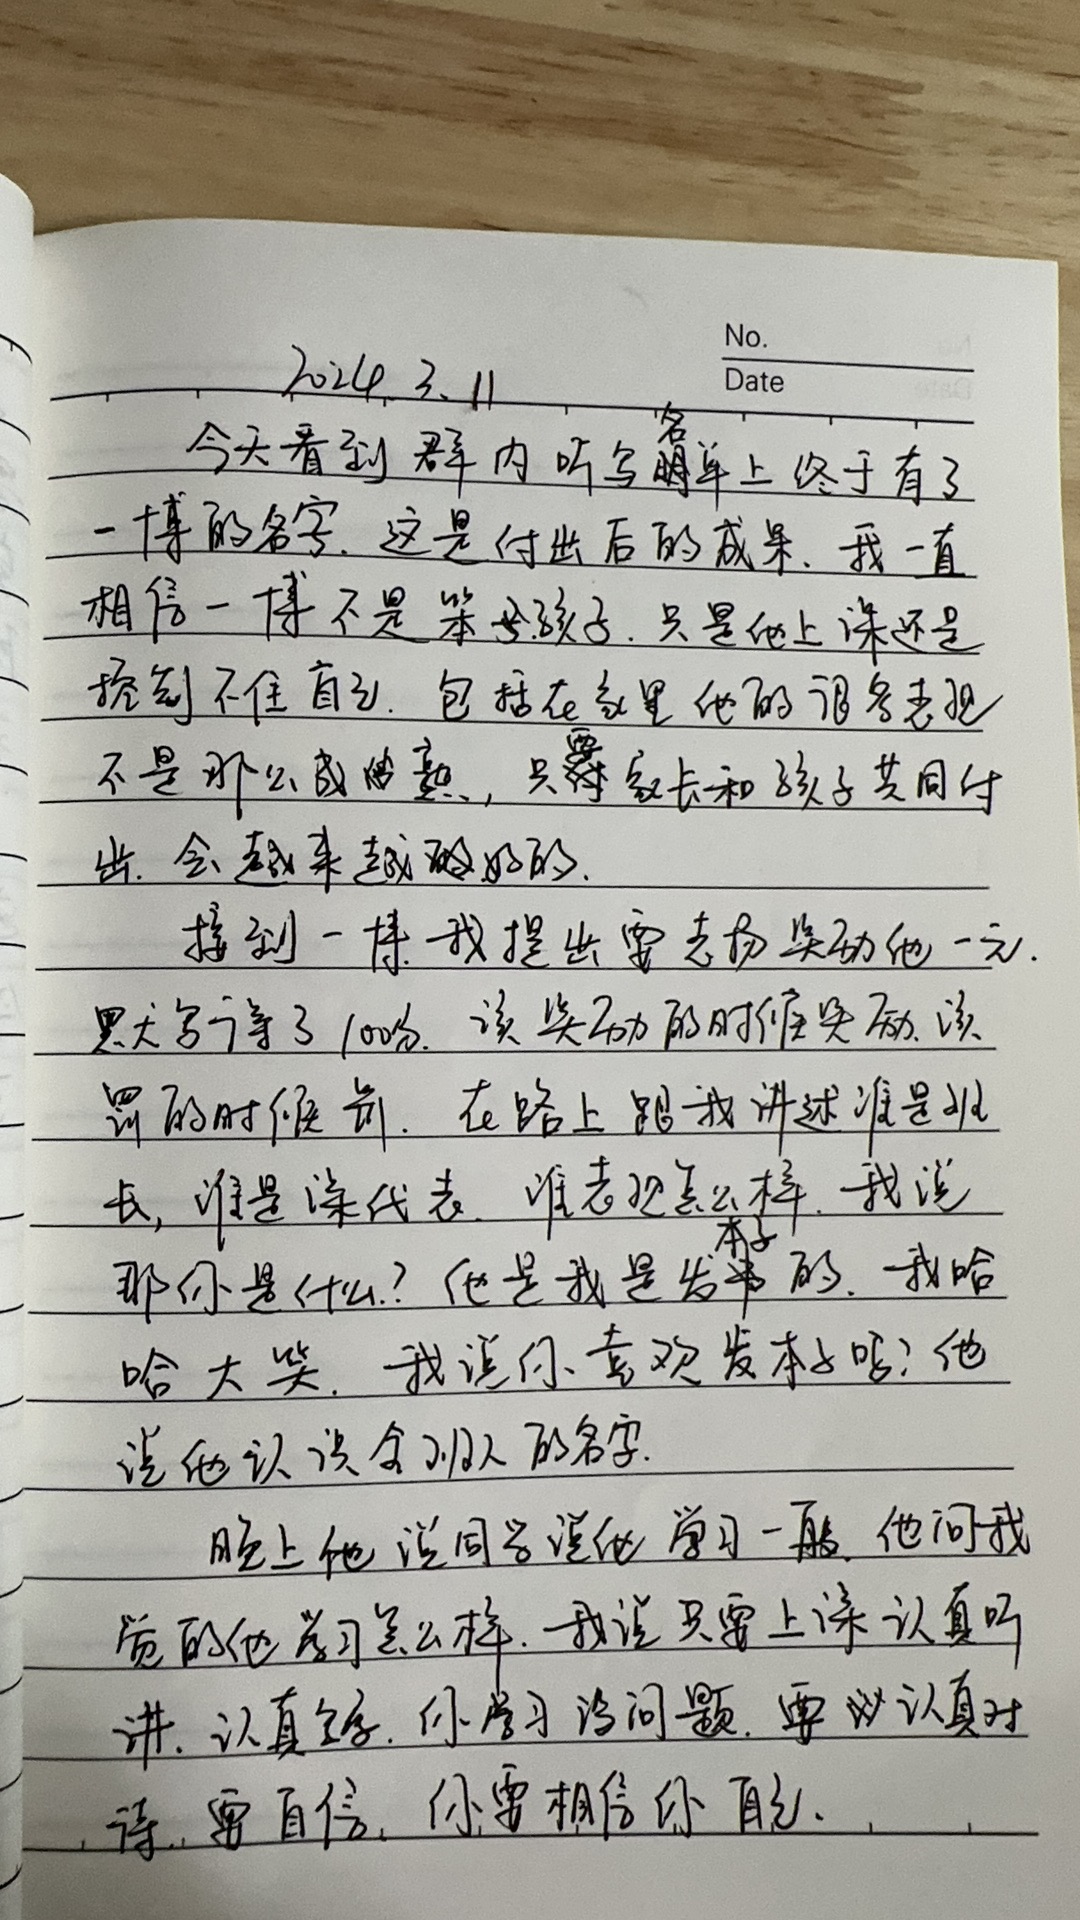 No.
Date
2024.3.11
今天看到群内听写名单上终于有了
一博的名字.这是付出后的成果.我一直
相信一博不是笨孩子.只是他上课还是
控制不住自己.包括在家里他的很多表现
不是那么成熟,只要家长和孩子共同付
出.会越来越好的.
接到一博我提出要表扬奖励他一元.
默写得了100分.该奖励的时候奖励.该
罚的时候罚.在路上跟我讲述谁是班
长,谁是课代表.谁表现怎么样.我说
那你是什么?他是我是发本子的.我哈
哈大笑.我说你喜欢发本子吗?他
说他认识全班人的名字.
晚上他说同学说他学习一般.他问我
觉的他学习怎么样.我说只要上课认真听
讲.认真写字.你学习没问题.要认真对
待.要自信.你要相信你自己.